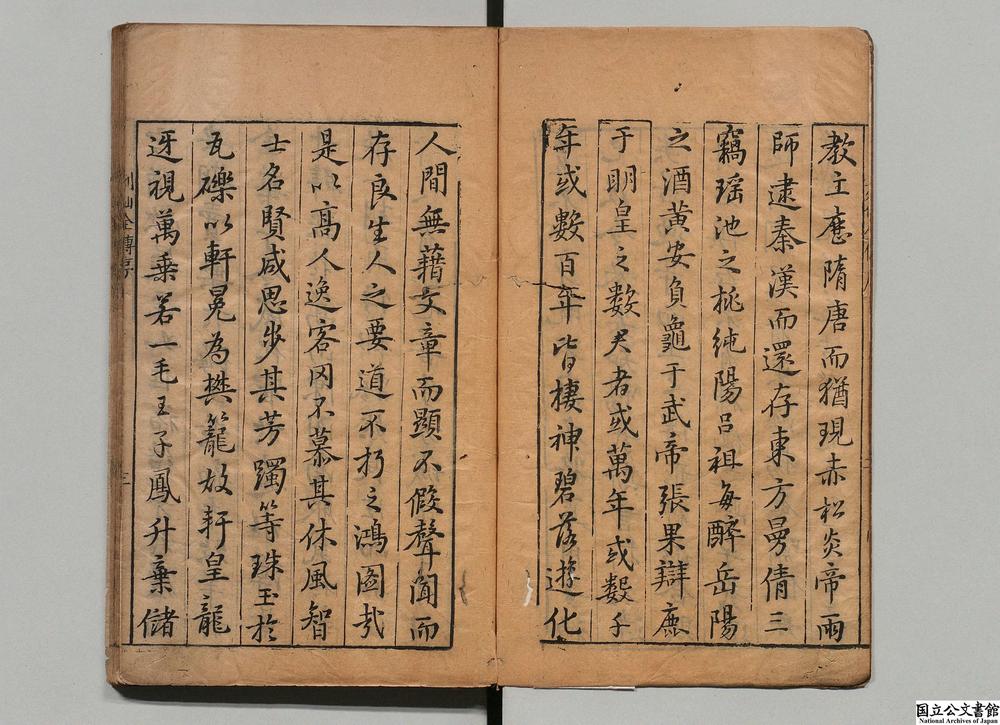 教主應隋唐而猶現赤松炎帝雨
師逮秦漢而還存東方曼倩三
竊瑶池之桃純陽呂祖每醉岳陽
之酒黃安負龜于武帝張果辯鹿
于明皇之數夫者或萬年或數千
年或數百年皆棲神碧落遊化
人間無藉文章而顯不假聲聞而
存良生人之要道不朽之鴻圖哉
是以高人逸客罔不慕其休風智
士名賢咸思步其芳躅等珠玉於
瓦礫以軒冕為樊籠故軒皇龍
迓視萬乗若一毛王子鳳升棄儲
列仙全傳序
三
国立公文書館
National Archives of Japan